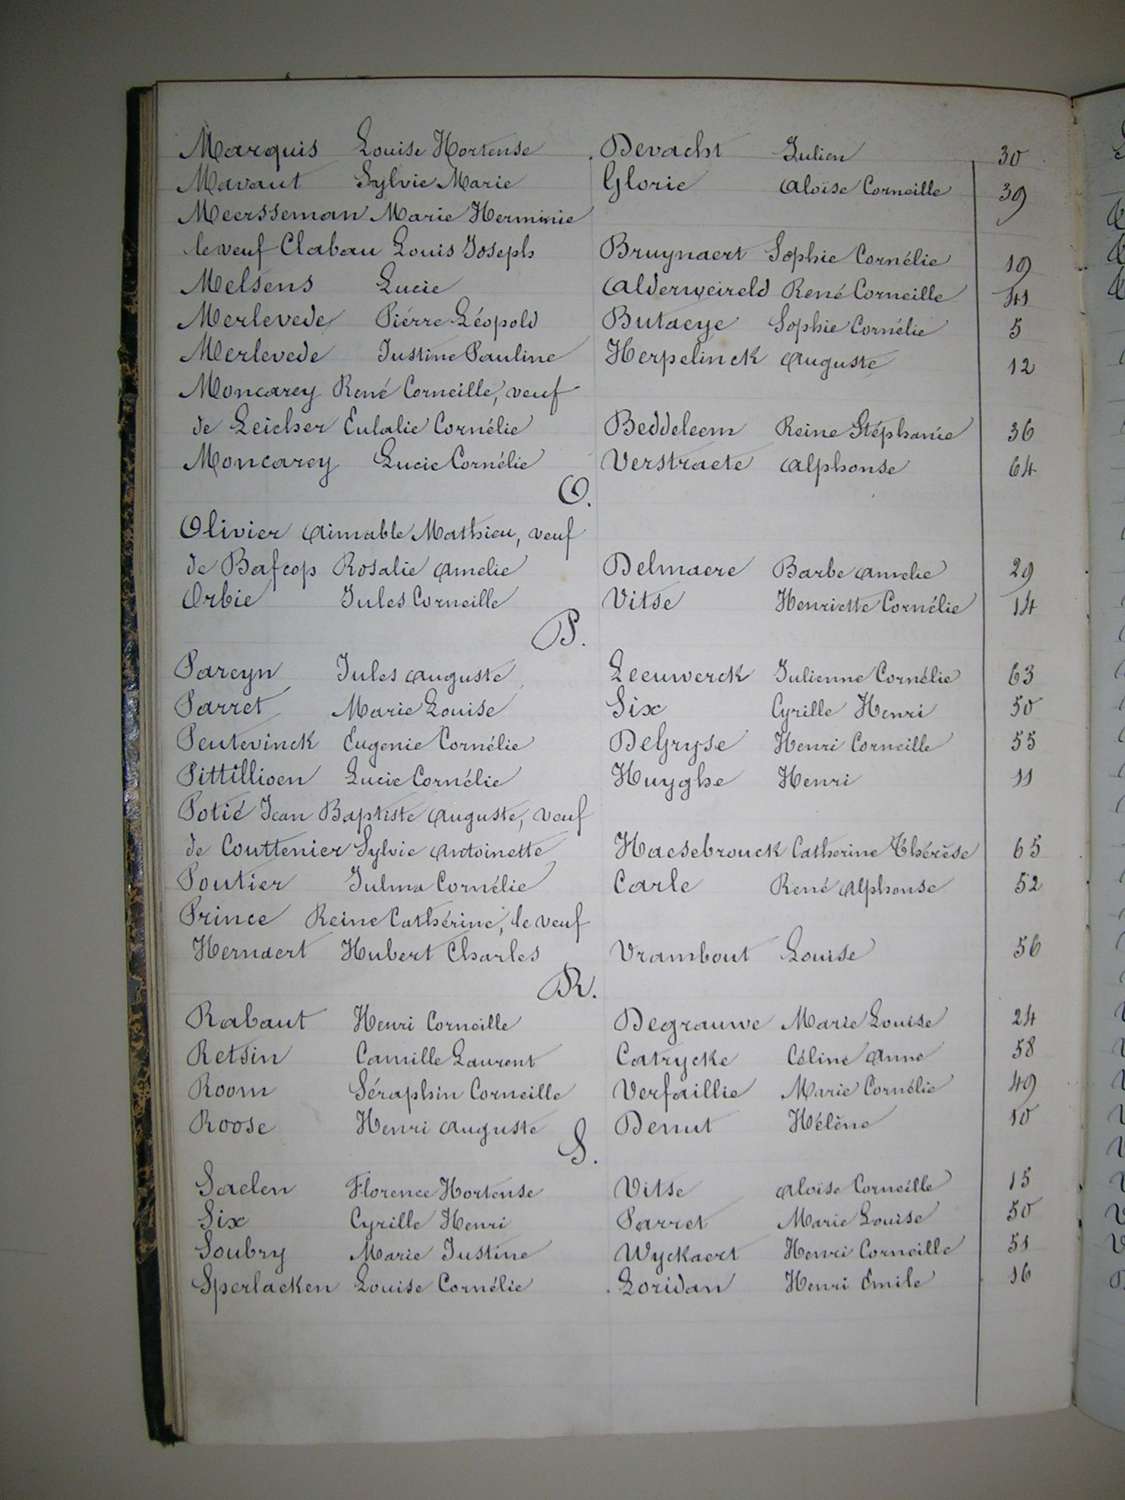 Marquis Louise Hortense Devacht Julien 30
Mavaut Sylvie Marie Glorie Aloïse Corneille 39
Meersseman Marie Herminie
le veuf Clabau Louis Joseph Bruynaert Sophie Cornélie 19
Melsens Lucie Alderweireld René Corneille 41
Merlevede Piérre Léopold Butaeye Sophie Cornélie 5
Merlevede Justine Pauline Herpelinck Auguste 12
Moncarey René Corneille, veuf
de Leicher Eulalie Cornélie Beddeleem Reine Stéphanie 36
Moncarey Lucie Cornélie Verstraete Alphonse 64
O.
Olivier Aimable Mathieu, veuf
de Bafcop Rosalie Amelie Delmaere Barbe Amelie 29
Orbie Jules Corneille Vitse Henriette Cornélie 14
P.
Parcyn Jules Auguste Leeuwerck Julienne Cornélie 63
Parret Marie Louise Six Cyrille Henri 50
Peutevinck Eugenie Cornélie DeGryse Henri Corneille 55
Pittillioen Lucie Cornélie Huyghe Henri 11
Potié Jean Baptiste Auguste, veuf
de Couttenier Sylvie Antoinette Haesebrouck Catherine Thérèse 65
Poutier Julma Cornélie Carle René Alphonse 52
Prince Reine Cathérine, le veuf
Hernaert Hubert Charles Vrambout Louise 56
R.
Rabaut Henri Corneille Degrauwe Marie Louise 24
Retsin Camille Laurent Catrycke Céline Anne 58
Room Séraphin Corneille Verfaillie Marie Cornélie 49
Roose Henri Auguste Denut Hélène 10
S.
Saelen Florence Hortense Vitse Aloïse Corneille 15
Six Cyrille Henri Parret Marie Louise 50
Soubry Marie Justine Wyckaert Henri Corneille 51
Sperlaeken Louise Cornélie Loridan Henri Emile 16